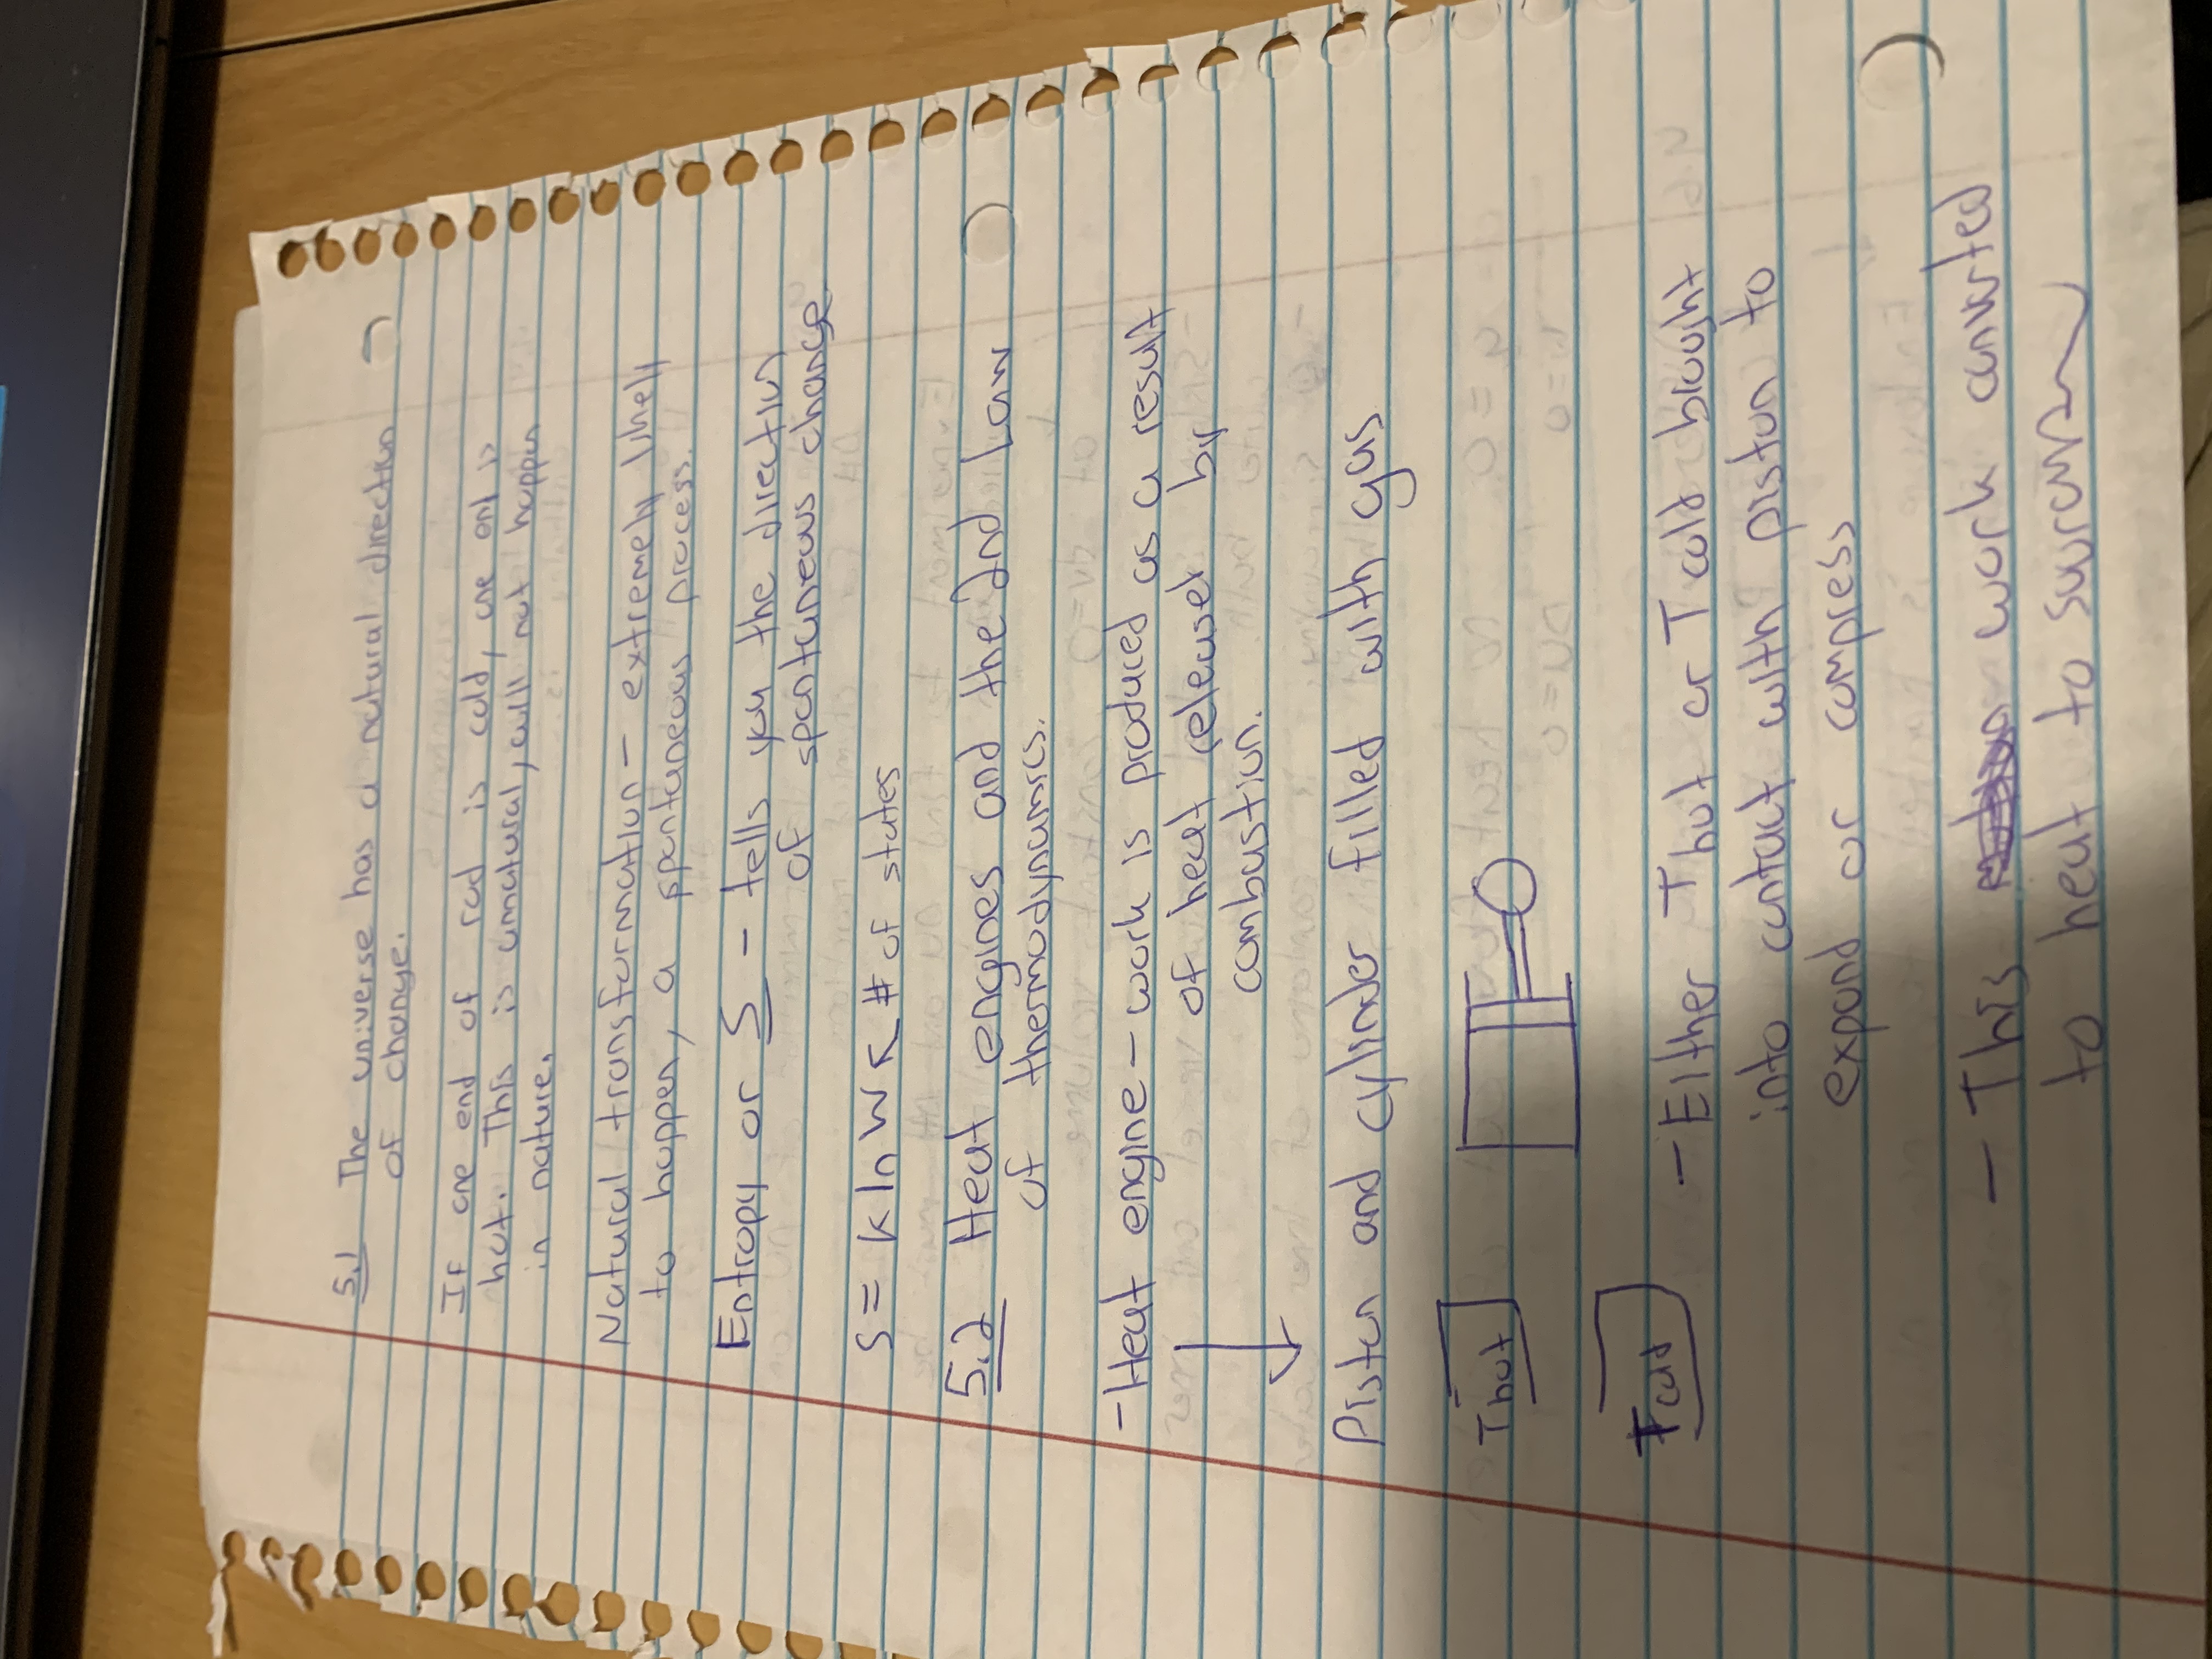 5.1 The universe has a natural direction
of change.
If one end of rod is cold, one end is
hot. This is unnatural, will not happen
in nature.
Natural transformation - extremely likely
to happen, a spontaneous process.
Entropy or S - tells you the direction
of spontaneous change
S = k ln W ↖ # of states
5.2 Heat engines and the 2nd Law
of thermodynamics.
- Heat engine - work is produced as a result
of heat released by
combustion.
Piston and cylinder filled with gas
T hot
T cold
- Either T hot or T cold brought
into contact with piston to
expand or compress
- This work converted
to heat to